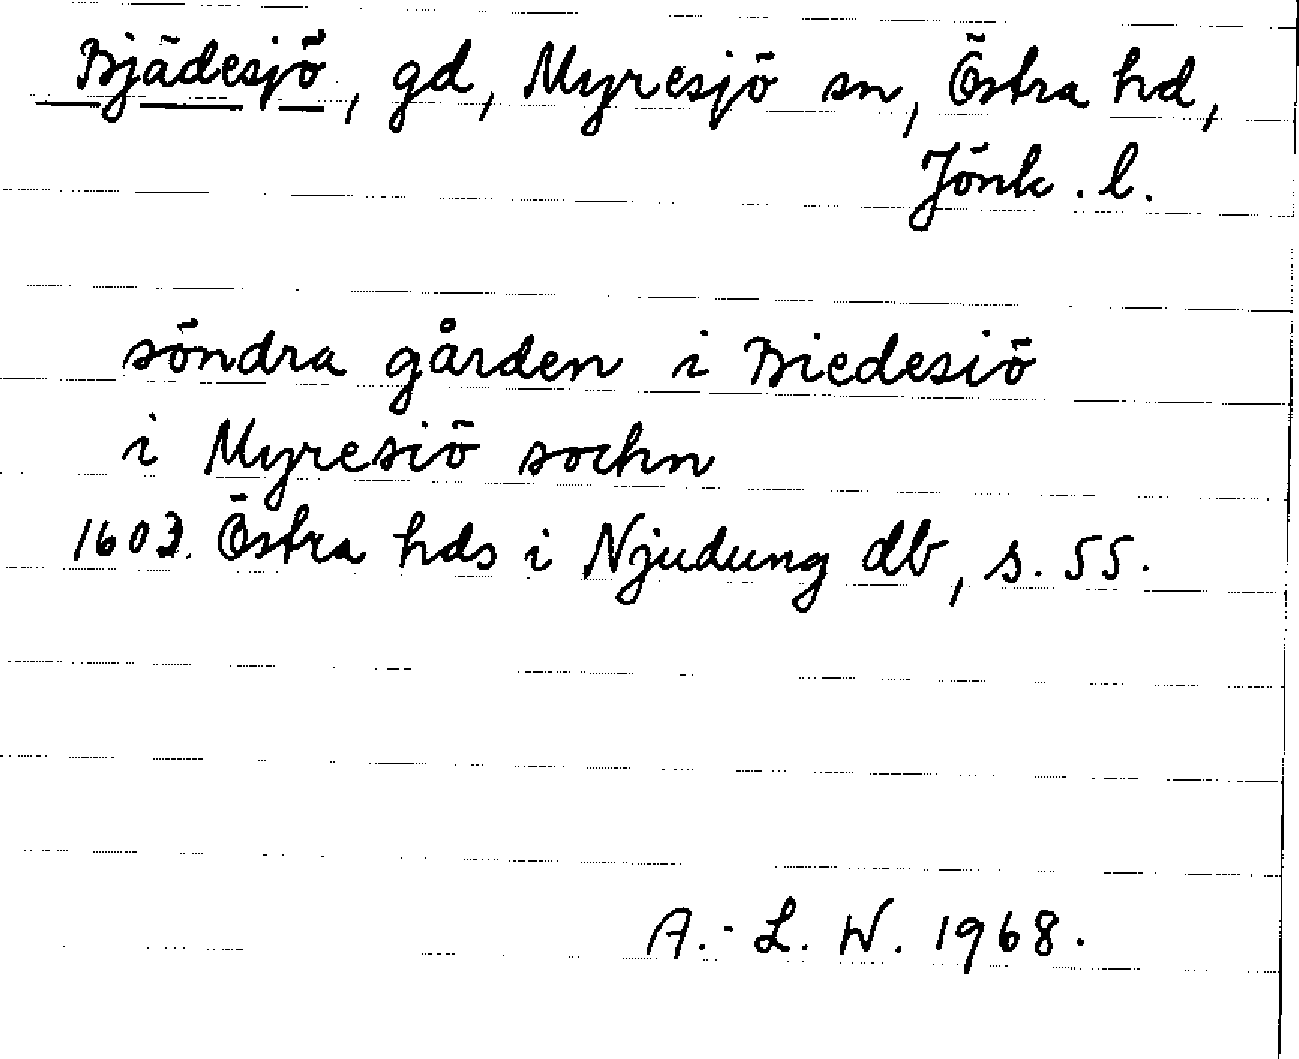 Bjädesjö, gd, Myresjö sn, Östra hd,
Jönk. l.
söndra gården i Biedesiö
i Myresiö sochn
1603. Östra hds i Njudung db, s. 55.
A.-L. W. 1968.